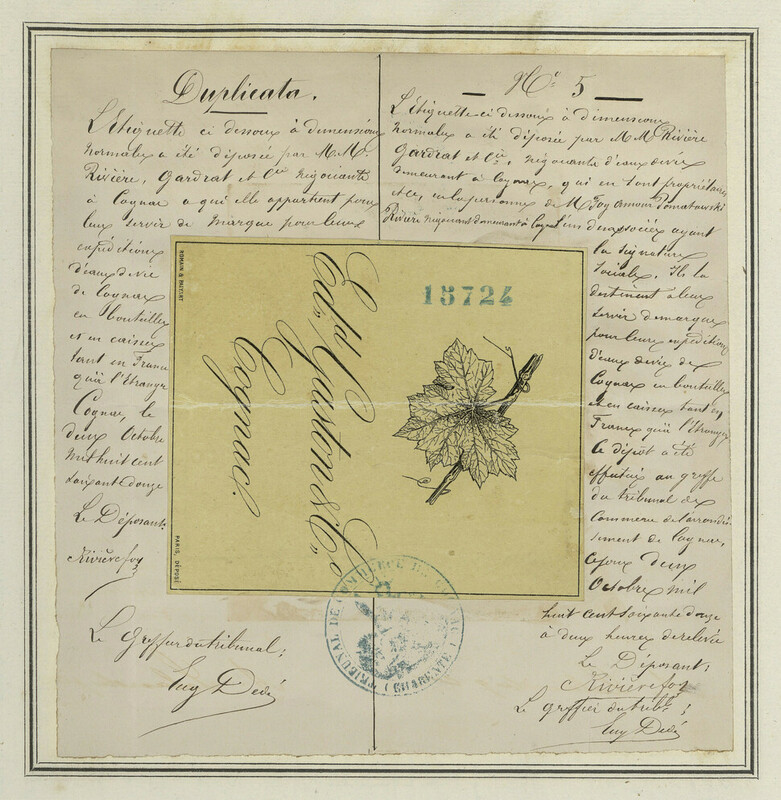 Duplicata.
L'Etiquette ci dessous à dimensions
normales a été déposée par M.M.
Rivière, Gardrat et Cie négociants
à Cognac a qui elle appartient pour
leur servir de marque pour leurs
expéditions
d'eaux de vie
de Cognac
en bouteilles
et en caisses
tant en France
qu'à l'Etranger
Cognac, le
deux Octobre
mil huit cent
soixante douze
Le Déposant:
Rivière foy
Le Greffier du tribunal;
Eug Dédé
No. 5
L'Etiquette ci dessous à dimensions
normales a été déposée par M.M. Rivière
Gardrat et Cie, négociants d'eaux de vie
demeurant à Cognac, qui en sont propriétaires
et ce, en la personne de M. Foy Amour Pomatowski
Rivière négociant demeurant à Cognac l'un des associés ayant
la signature
sociale. Ils la
destinent à leur
servir de marque
pour leurs expéditions
d'eaux de vie de
Cognac en bouteilles
et en caisses tant en
France qu'à l'Etranger
Ce dépôt a été
effectué au greffe
du tribunal de
Commerce de l'arrondis-
sement de Cognac,
ce jour deux
Octobre mil
huit cent soixante douze
à deux heures de relevée
Le Déposant;
Rivière foy
Le greffier du tribl;
Eug Dédé
ROMAIN & PALYART
15724
Edd. Gaston & Co.
Cognac.
PARIS, DÉPOSÉ
TRIBUNAL DE COMMERCE DE COGNAC
(CHARENTE)